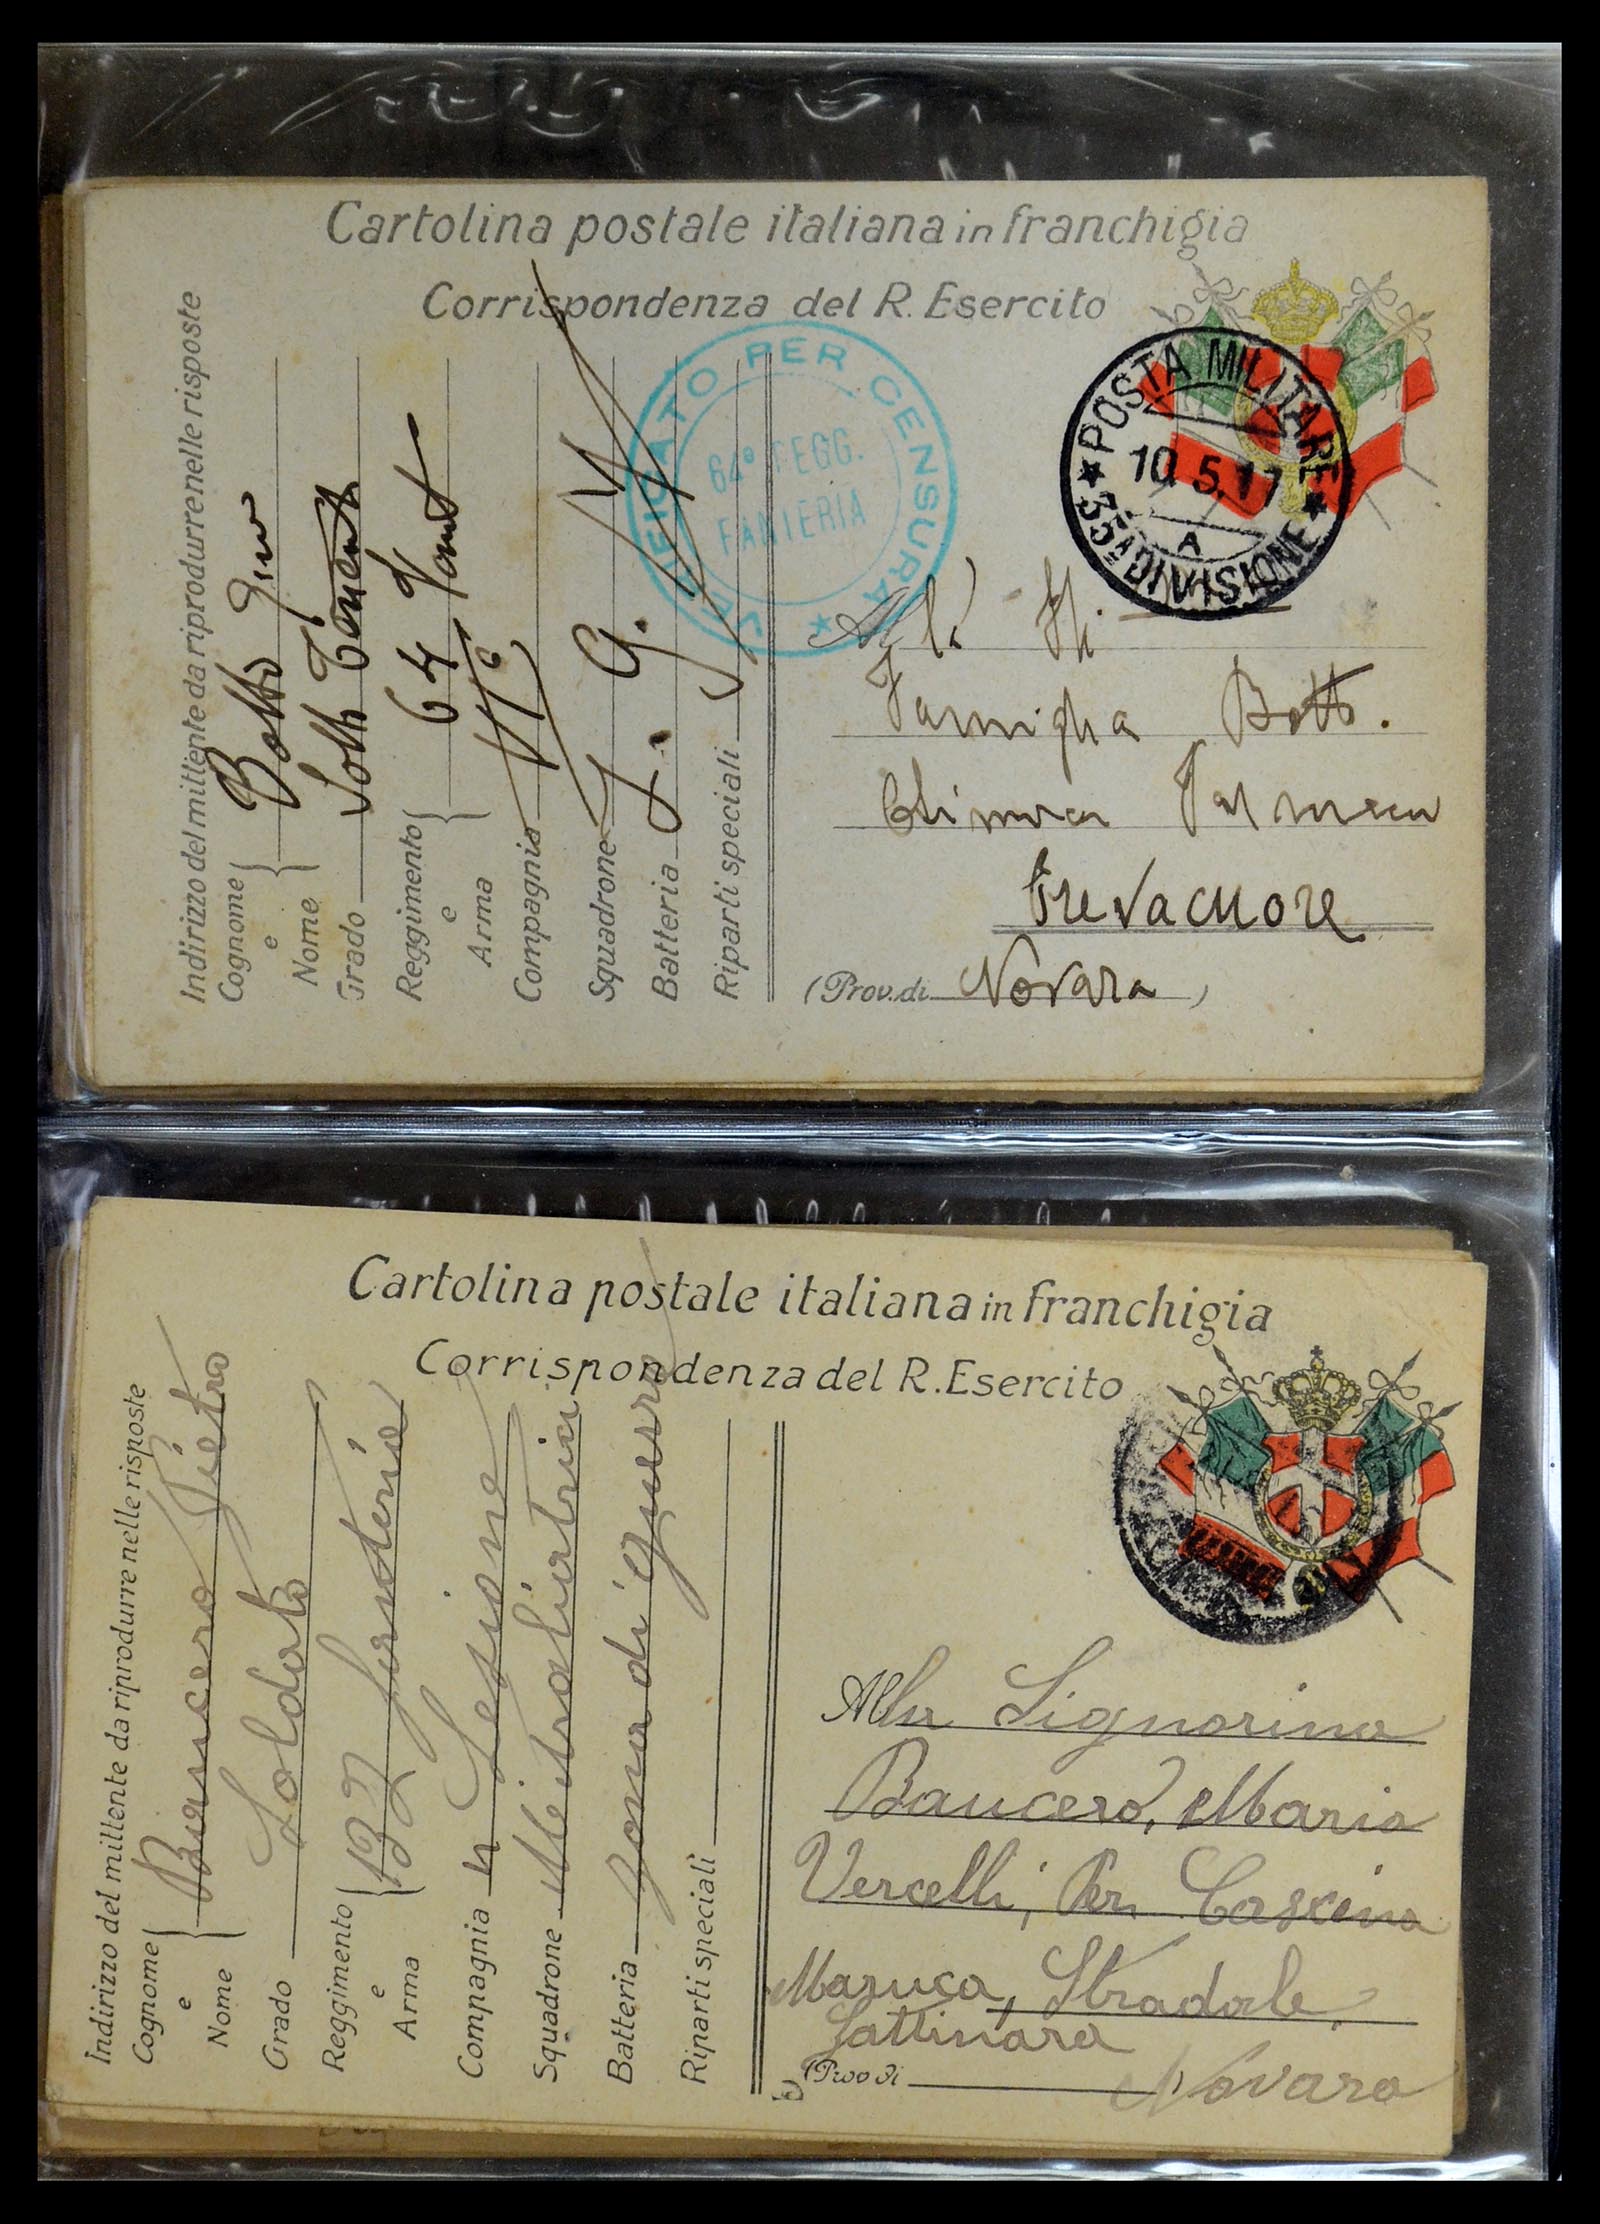 Cartolina postale italiana in franchigia
Corrispondenza del R. Esercito
Indirizzo del mittente da riprodurre nelle risposte
Cognome e Nome Botto Gino
Grado Sotto Tenente
Reggimento e Arma 64 Fant
Compagnia VIª
Squadrone
Batteria Z. G.
Riparti speciali
VERIFICATO PER CENSURA
64° REGG.
FANTERIA
POSTA MILITARE
10.5.17
A
33ª DIVISIONE
Alla
Famiglia Botto.
Crevacuore
(Prov. di Novara)
Cartolina postale italiana in franchigia
Corrispondenza del R. Esercito
Indirizzo del mittente da riprodurre nelle risposte
Cognome e Nome Baucero Pietro
Grado Soldato
Reggimento e Arma 132 fanteria
Compagnia n Sesione
Squadrone Mitraliatrici
Batteria zona di guerra
Riparti speciali
Alla Signorina
Baucero, Maria
Vercelli, Per Cascina
Maruca, Stradale,
Gattinara
(Prov di Novara